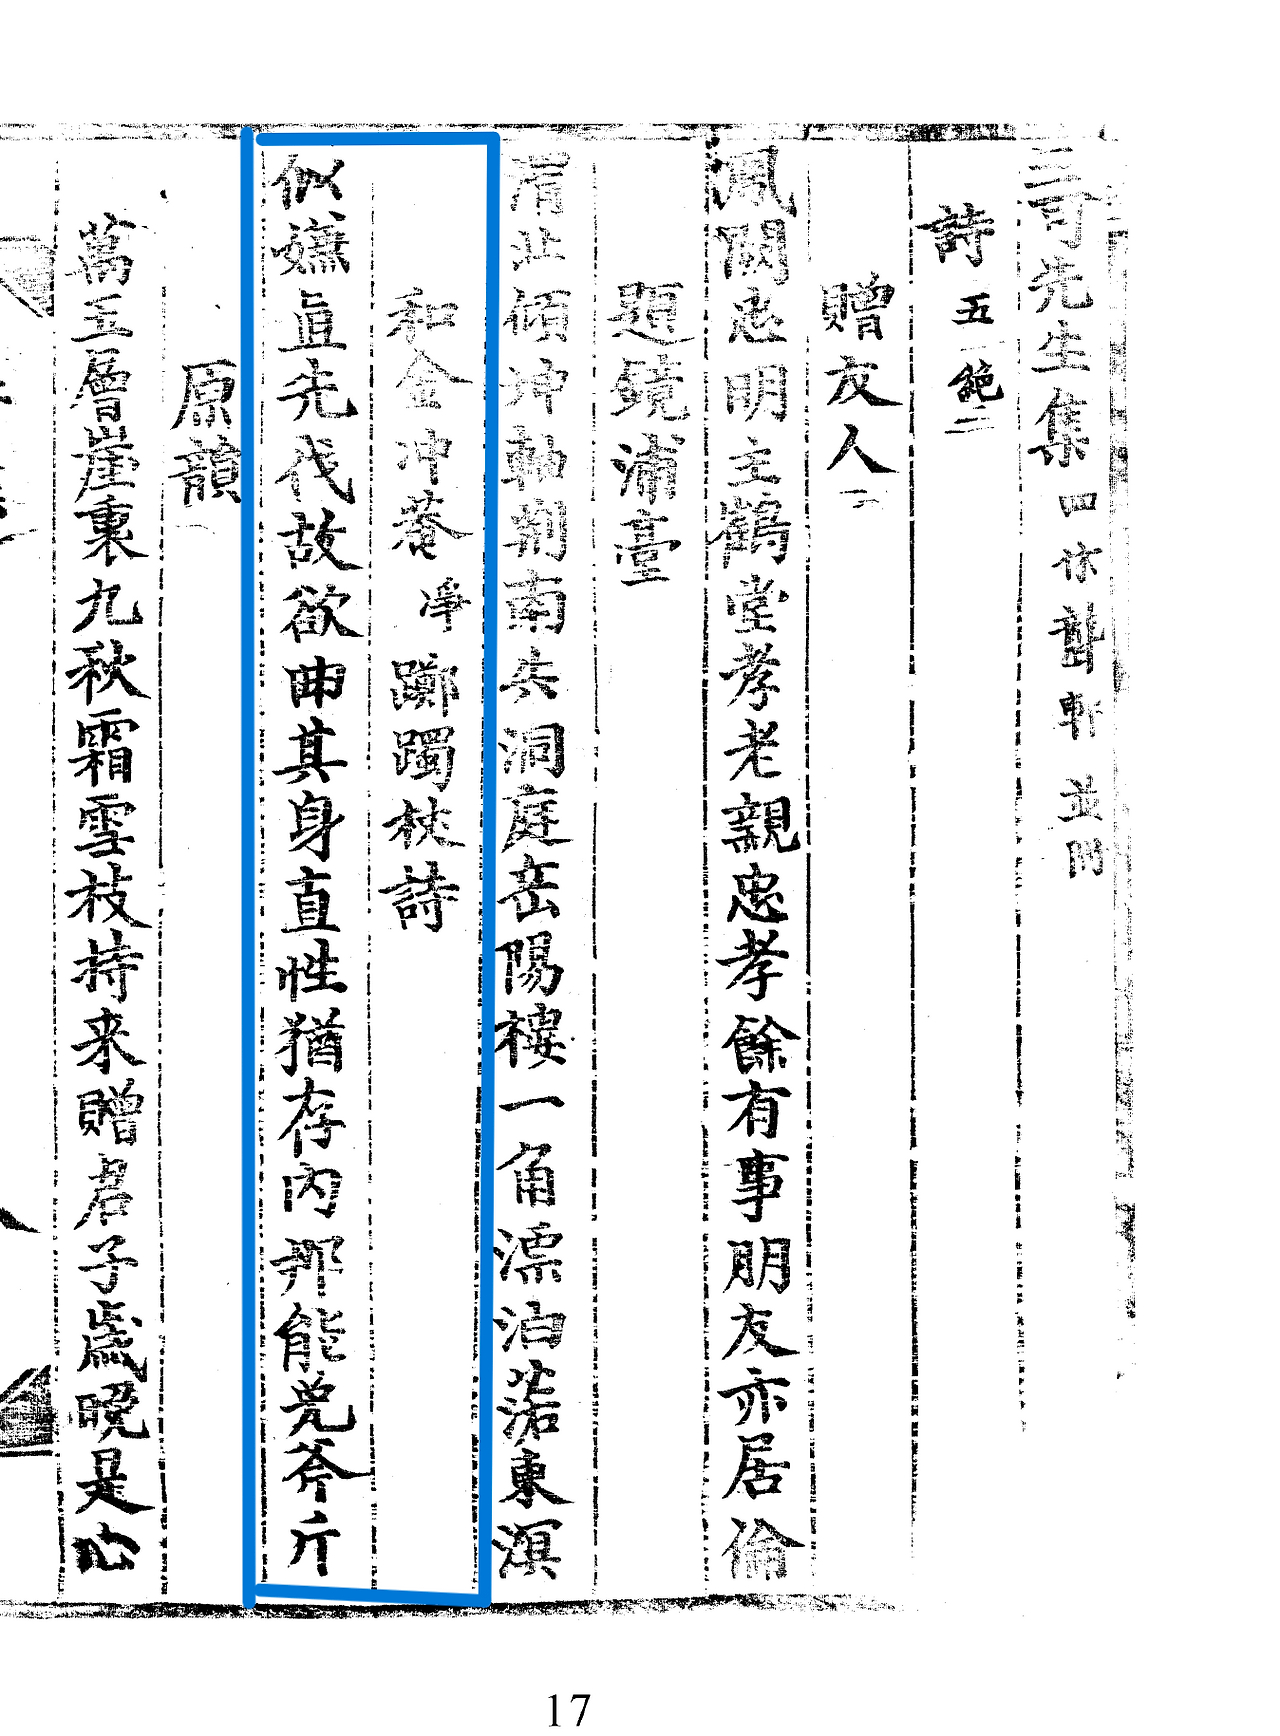 三可先生集 四休 聾軒 並附
詩 五絕二
贈友人
鳳闕忠明主鶴堂孝老親忠孝餘有事朋友亦居倫
題鏡浦臺
傾坤軸荊南失洞庭岳陽樓一角漂泊落東溟
和金冲菴 淨 躑躅杖詩
似嫌直先伐故欲曲其身直性猶存內那能免斧斤
原韻
萬玉層崖裏九秋霜雪枝持来贈君子歲晚是心
17